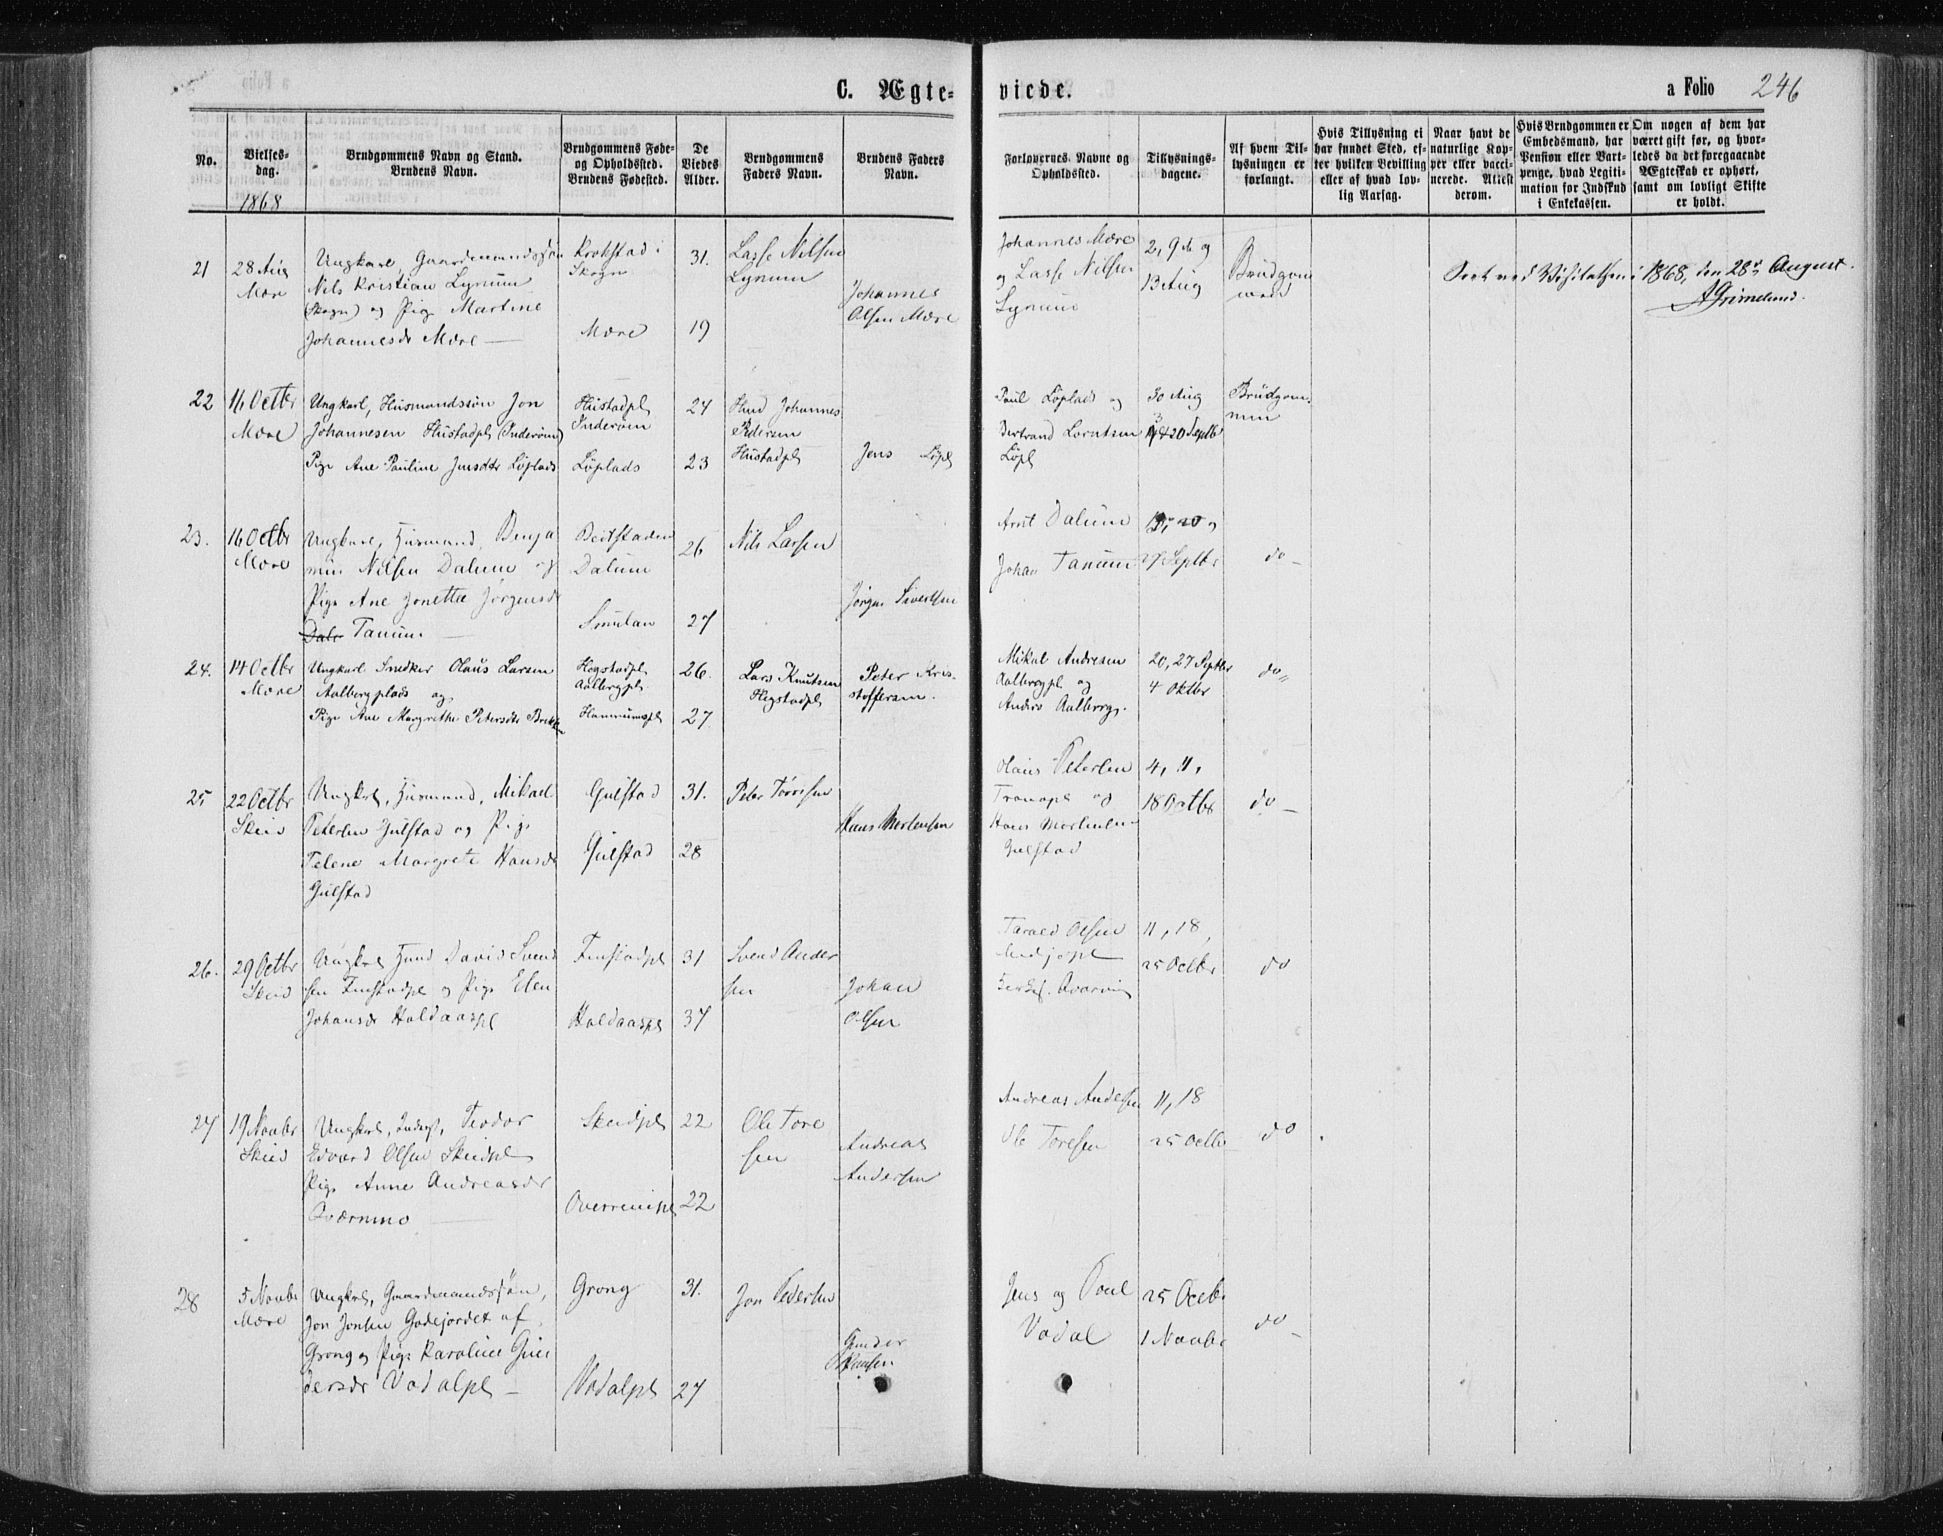 C. Ægte-
viede.
a Folio 246
No.
Vielses-
dag.
1868
Brudgommens Navn og Stand.
Brudens Navn.
Brudgommens Føde-
og Opholdssted.
Brudens Fødested.
De
Viedes
Alder.
Brudgommens
Faders Navn.
Brudens Faders
Navn.
Forlovernes Navne og
Opholdssted.
Tillysnings-
dagene.
Af hvem Til-
lysningen er
forlangt.
Hvis Tillysning ei
har fundet Sted, ef-
ter hvilken Bevilling
eller af hvad lov-
lig Aarsag.
Naar havt de
naturlige Kop-
per eller vacci-
nerede. Attest
derom.
Hvis Brudgommen er
Embedsmand, har
Pension eller Vart-
penge, hvad Legiti-
mation for Indskud
i Enkekassen.
Om nogen af dem har
været gift før, og hvor-
ledes da det foregaaende
Ægteskab er ophørt,
samt om lovligt Skifte
er holdt.
21
28 Aug
Mære
Ungkarl Gaardmandssøn
Nils Kristian Lynum
(Skogn) og Pige Martine
Johannesdr Mære
Krokstad i
Skogn
Mære
31.
19
Lasse Nilsen
Lynum
Johannes
Olsen Mære
Johannes Mære
og Lasse Nilsen
Lynum
2, 9de og
13 Aug
Brudgom
men
ved Visitatsen i 1868, den 28de August.
AGrimelund.
22
16 Octbr
Mære
Ungkarl, Husmandssøn Jon
Johannesen Hustadpl (Inderøen)
Pige Ane Pauline Jensdtr Løplads
Hustadpl
Inderøen
Løplads
24
23
Hmd Johannes
Pedersen
Hustadpl
Jens Løpl
Paul Løplads og
Bertrand Lorntsen
Løpl
30 Aug
20 Septbr
Brudgom-
men
23.
16 Octbr
Mære
Ungkarl, Husmand Benja
min Nilsen Dalum og
Pige Ane Jonetta Jørgensdr
Tanum
Beitstaden
Dalum
Smulan
26
27
Nils Larsen
Jørgen Sivertsen
Arnt Dalum
Johan Tanum
27 Septbr
do
24.
14 Octbr
Mære
Ungkarl Snedker Olaus Larsen
Aalbergplads og
Pige Ane Margrethe Petersdtr Brekken
Hegstadpl
Aalbergpl
Hammumspl
26.
27
Lars Knutsen
Hegstadpl
Peter Kris-
stoffersen.
Mikal Andresen
Aalbergpl og
Anders Aalberg.
20, 27 Septbr
4 Oktbr
do
25
22 Octbr
Skeid
Ungkarl, Husmand, Mikael
Petersen Gulstad og Pige
Telene Margrete Hansdr
Gulstad
Gulstad
Gulstad
31.
28
Peter Torrissen
Hans Mortensen
Olaus Petersen
og
Hans Mortensen
Gulstad
4, 11,
18 Octbr
do
26.
29 Octbr
Skeid
Ungkarl Husmd David Svend
sen Finstadpl og Pige Elen
Johansdr Haldaaspl
Finstadpl
Haldaaspl
31
37
Svend Ander
sen
Johan
Olsen
Olsen
11, 18,
25 Octbr
do
27
19 Novbr
Skeid
Ungkarl, Teodor
Edvard Olsen Skeidpl
Pige Anne Andreasdr
Qværnmo
Skeidpl
22
22
Ole Tore
sen
Andreas
Andersen
Andreas Andersen
Ole Toresen
11, 18
25 Octbr
do
28
5 Novbr
Mære
Ungkarl, Gaardmandssøn,
Jon Jonsen Godejordet af
Grong og Pige Karoline Gun
dersdr Vodalpl
Grong
Vodalpl
31.
27
Jon Pedersen
Gunder
Jens og Poul
Vodal
25 Octbr
1 Novbr
do